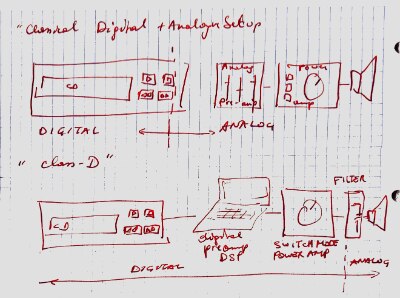 "Classical Digital + Analogue Setup
Analog Power
CD D D
Pre-amp amp
DIGITAL ANALOG
"Class-D"
FILTER
CD
digital
preamp SWITCH MODE
DSP POWER AMP
DIGITAL ANALOG